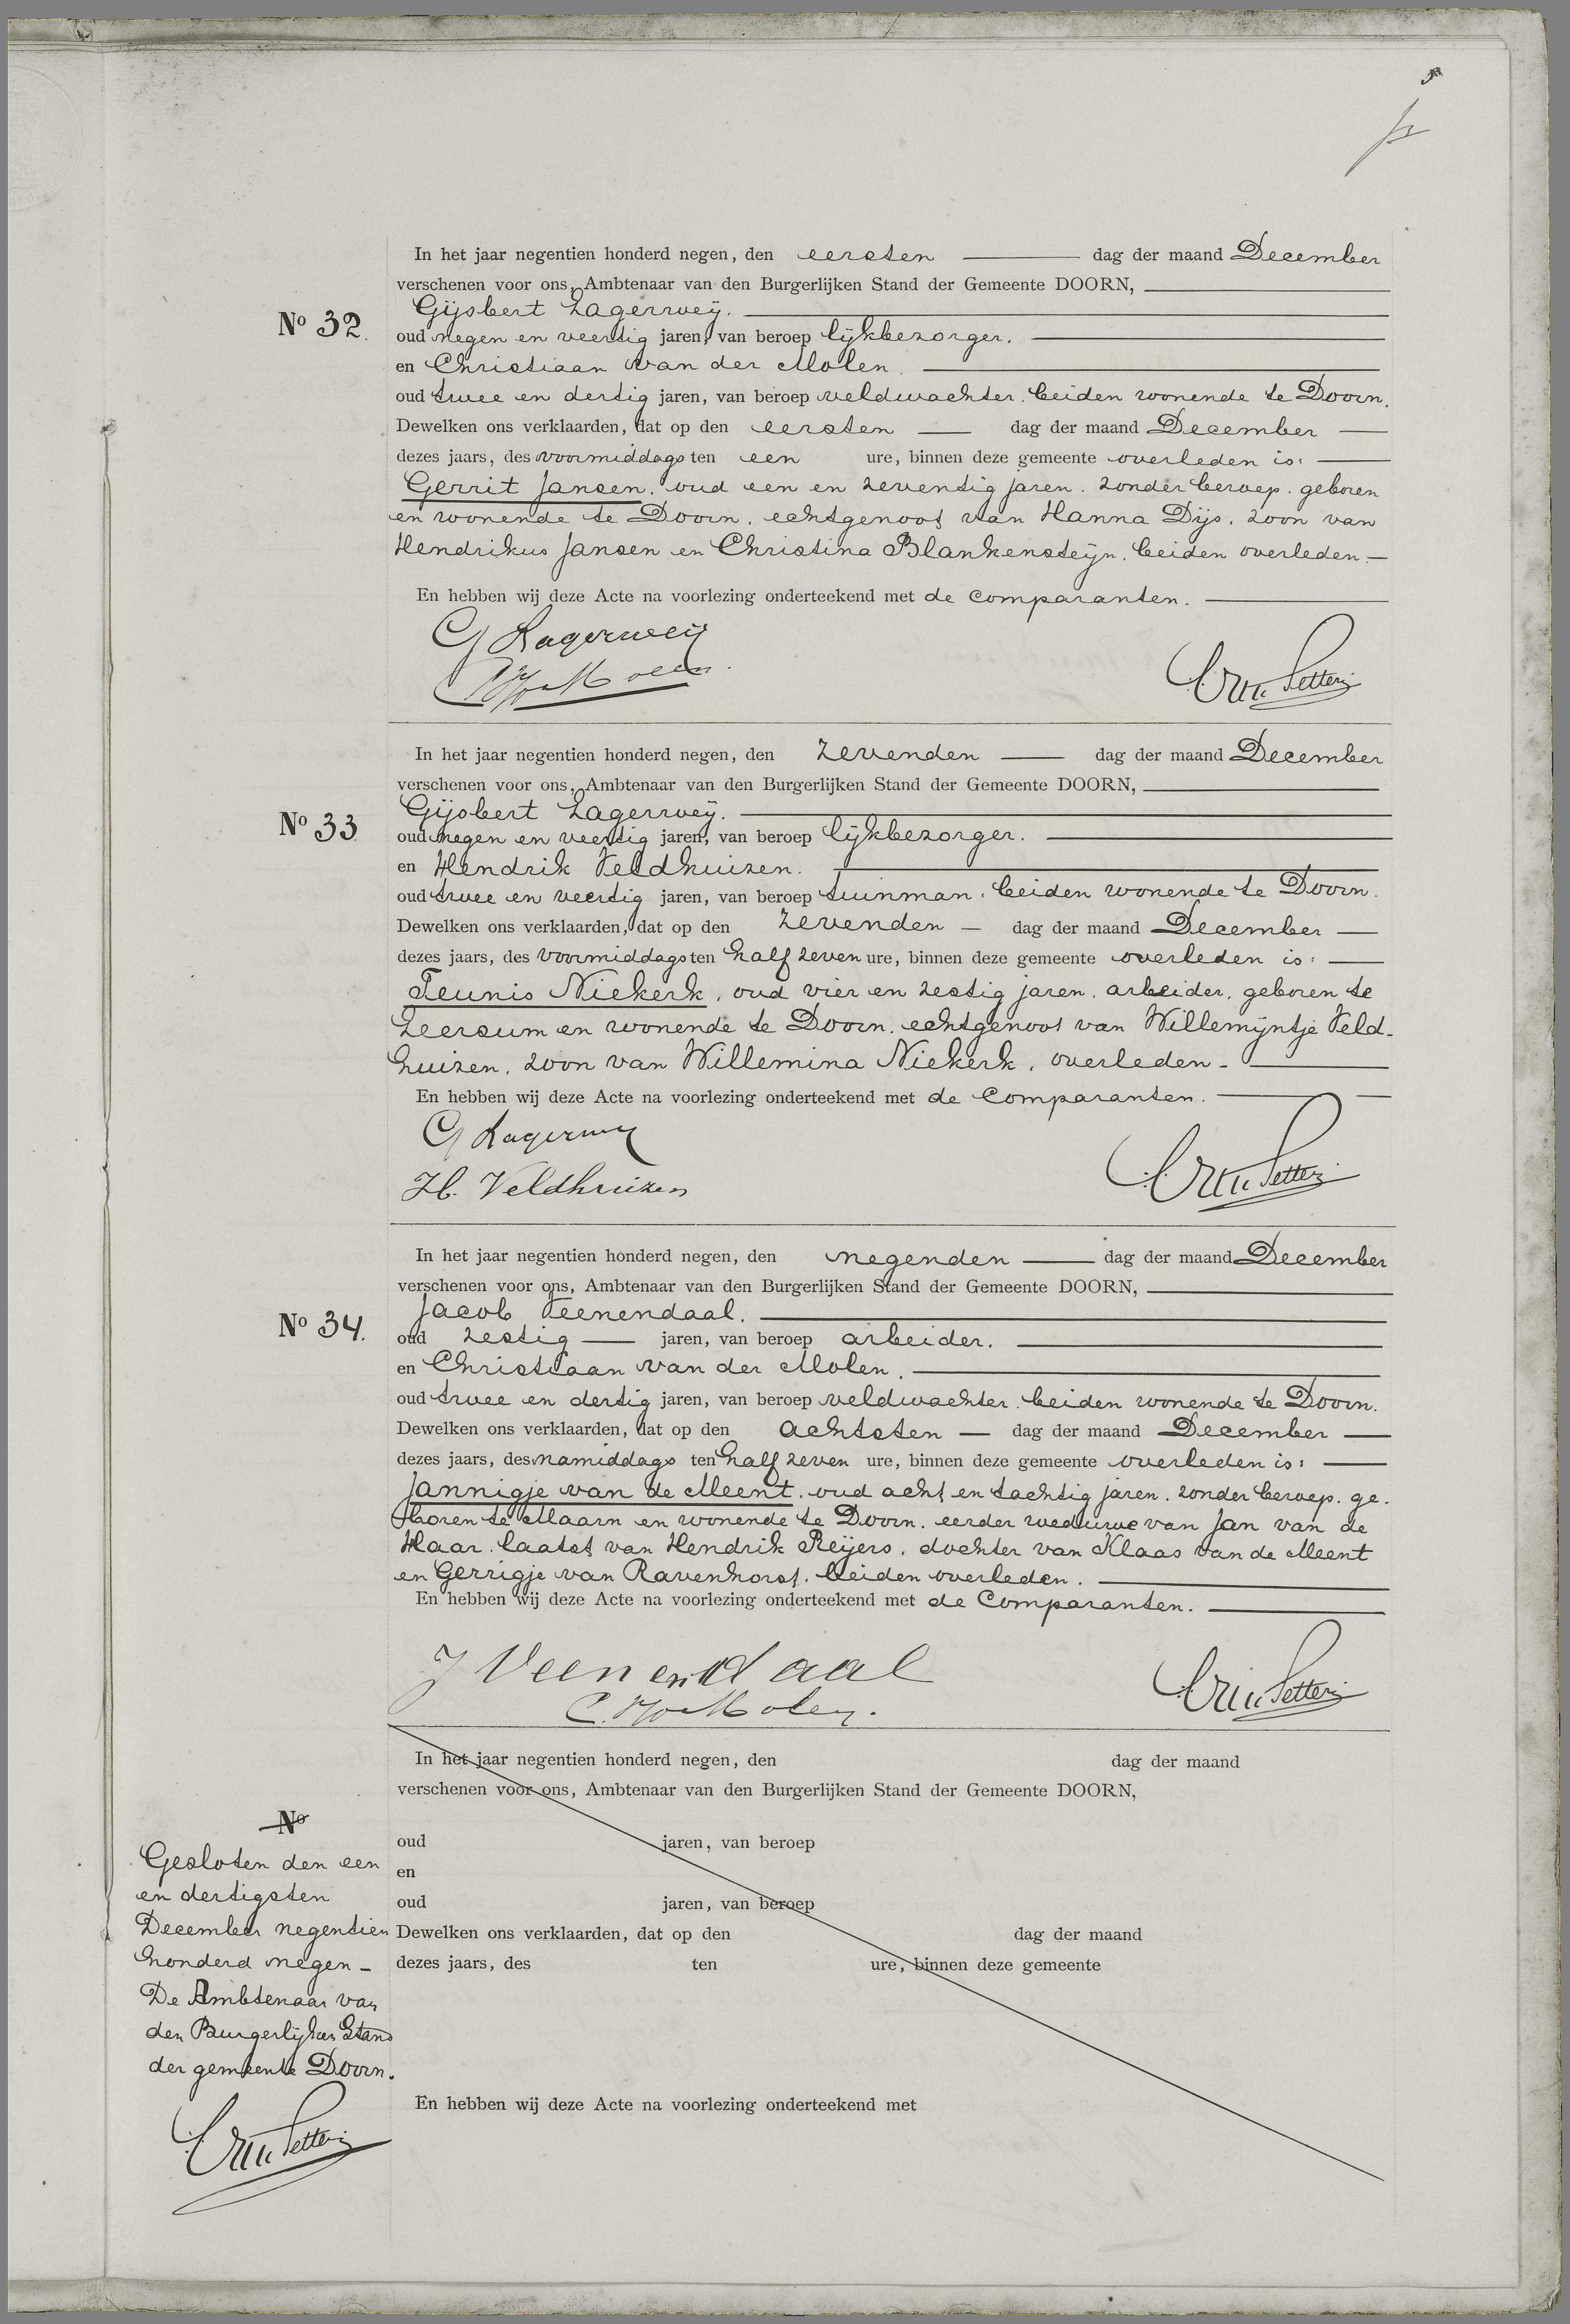 5
In het jaar negentien honderd negen, den eersten dag der maand December
verschenen voor ons, Ambtenaar van den Burgerlijken Stand der Gemeente DOORN,
Gijsbert Lagerweij.
No 32.
oud negen en veertig jaren, van beroep lijkbezorger.
en Christiaan van der Molen.
oud twee en dertig jaren, van beroep veldwachter. beiden wonende te Doorn.
Dewelken ons verklaarden, dat op den eersten dag der maand December
dezes jaars, des voormiddags ten een ure, binnen deze gemeente overleden is:
Gerrit Jansen. oud een en zeventig jaren. zonder beroep. geboren
en wonende te Doorn. echtgenoot van Hanna Dijs. zoon van
Hendrikus Jansen en Christina Blankensteijn. beiden overleden.
En hebben wij deze Acte na voorlezing onderteekend met de comparanten.
G Lagerweij
C. v. d. Molen.
In het jaar negentien honderd negen, den zevenden dag der maand December
verschenen voor ons, Ambtenaar van den Burgerlijken Stand der Gemeente DOORN,
Gijsbert Lagerweij.
No 33
oud negen en veertig jaren, van beroep lijkbezorger.
en Hendrik Veldhuizen.
oud twee en veertig jaren, van beroep tuinman. beiden wonende te Doorn.
Dewelken ons verklaarden, dat op den zevenden dag der maand December
dezes jaars, des voormiddags ten half zeven ure, binnen deze gemeente overleden is:
Teunis Niekerk, oud vier en zestig jaren. arbeider. geboren te
Leersum en wonende te Doorn. echtgenoot van Willemijntje Veld-
huizen. zoon van Willemina Niekerk. overleden.
En hebben wij deze Acte na voorlezing onderteekend met de Comparanten.
G Lagerweij
H. Veldhuizen
In het jaar negentien honderd negen, den negenden dag der maand December
verschenen voor ons, Ambtenaar van den Burgerlijken Stand der Gemeente DOORN,
Jacob Veenendaal.
No 34.
oud zestig jaren, van beroep arbeider.
en Christiaan van der Molen.
oud twee en dertig jaren, van beroep veldwachter. beiden wonende te Doorn.
Dewelken ons verklaarden, dat op den achtsten dag der maand December
dezes jaars, des namiddags ten half zeven ure, binnen deze gemeente overleden is:
Jannigje van de Meent. oud acht en tachtig jaren. zonder beroep. ge-
boren te Maarn en wonende te Doorn. eerder weduwe van Jan van de
Haar. laatst van Hendrik Reijers. dochter van Klaas van de Meent
en Gerrigje van Ravenhorst. beiden overleden.
En hebben wij deze Acte na voorlezing onderteekend met de Comparanten.
J Veenendaal
C. v. d. Molen.
In het jaar negentien honderd negen, den dag der maand
verschenen voor ons, Ambtenaar van den Burgerlijken Stand der Gemeente DOORN,
No
oud jaren, van beroep
en
oud jaren, van beroep
Dewelken ons verklaarden, dat op den dag der maand
dezes jaars, des ten ure, binnen deze gemeente
En hebben wij deze Acte na voorlezing onderteekend met
Gesloten den een
en dertigsten
December negentien
honderd negen
De Ambtenaar van
den Burgerlijken Stand
der gemeente Doorn.